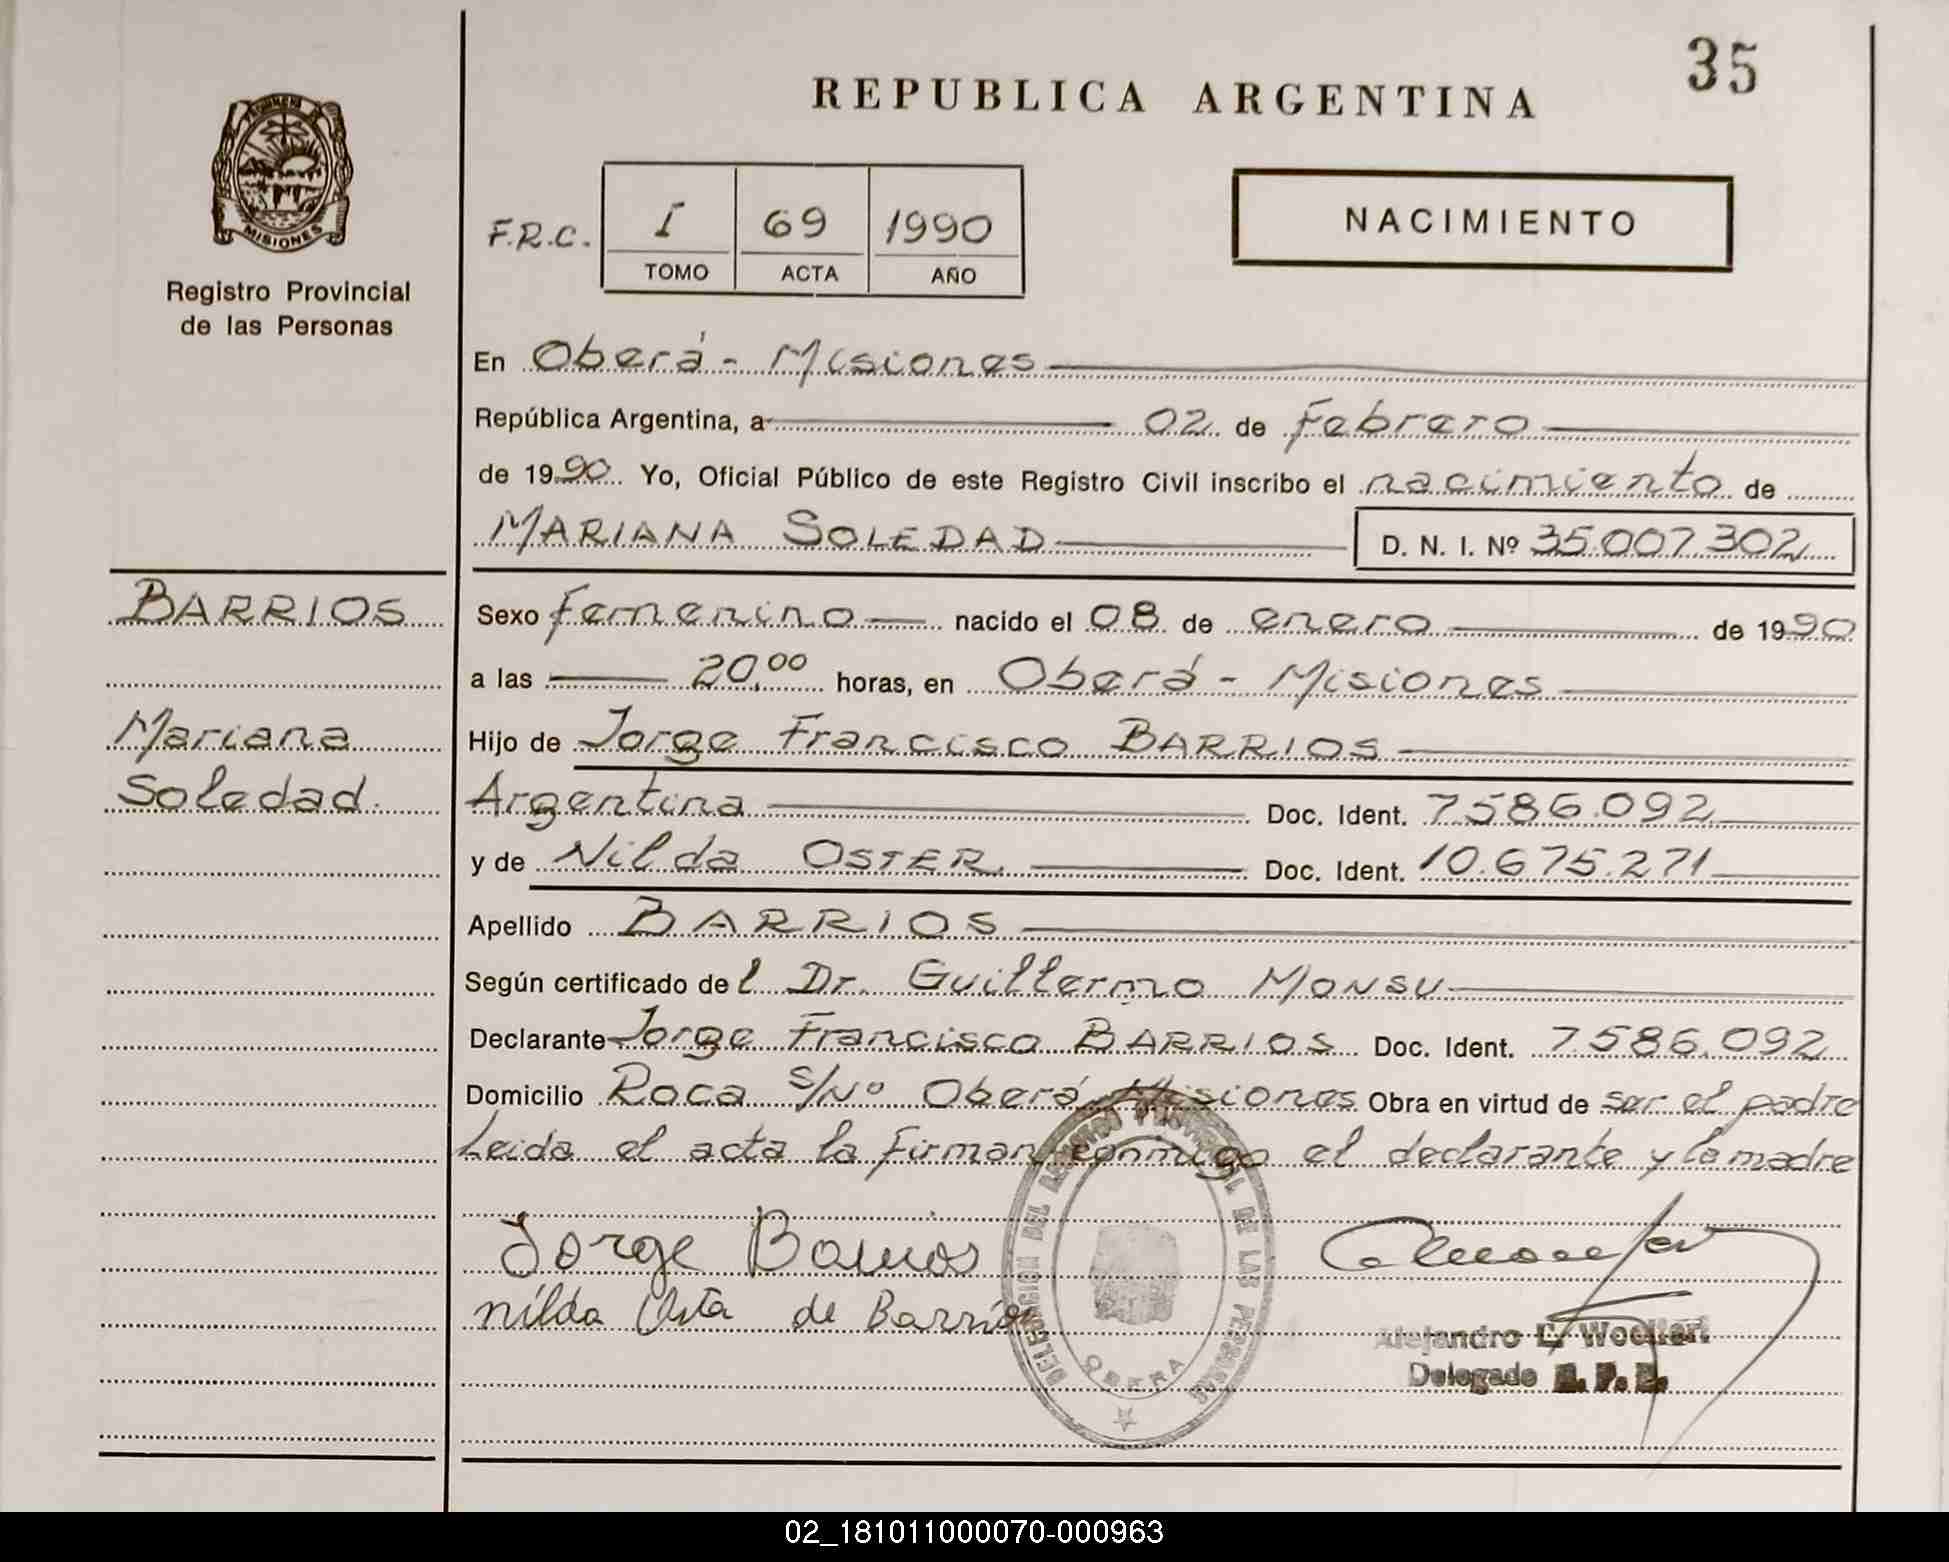 35
REPUBLICA ARGENTINA
MISIONES
Registro Provincial
de las Personas
F.R.C. I 69 1990
TOMO ACTA AÑO
NACIMIENTO
En Oberá - Misiones
República Argentina, a 02 de Febrero
de 1990 Yo, Oficial Público de este Registro Civil inscribo el nacimiento de
MARIANA SOLEDAD D. N. I. Nº 35.007.302
BARRIOS
Mariana
Soledad.
Sexo femenino nacido el 08 de enero de 1990
a las 20,00 horas, en Oberá - Misiones
Hijo de Jorge Francisco BARRIOS
Argentina Doc. Ident. 7586.092
y de Nilda OSTER. Doc. Ident. 10.675.271
Apellido BARRIOS
Según certificado del Dr. Guillermo MONSU
Declarante Jorge Francisco BARRIOS Doc. Ident. 7.586.092
Domicilio Roca s/Nº Oberá Misiones Obra en virtud de ser el padre
Leida el acta la firman conmigo el declarante y la madre
Jorge Barrios
nilda de Barrios
DELEGACION DEL REGISTRO PROVINCIAL DE LAS PERSONAS
OBERA
Alejandro L.
Delegado R. P. P.
02_181011000070-000963